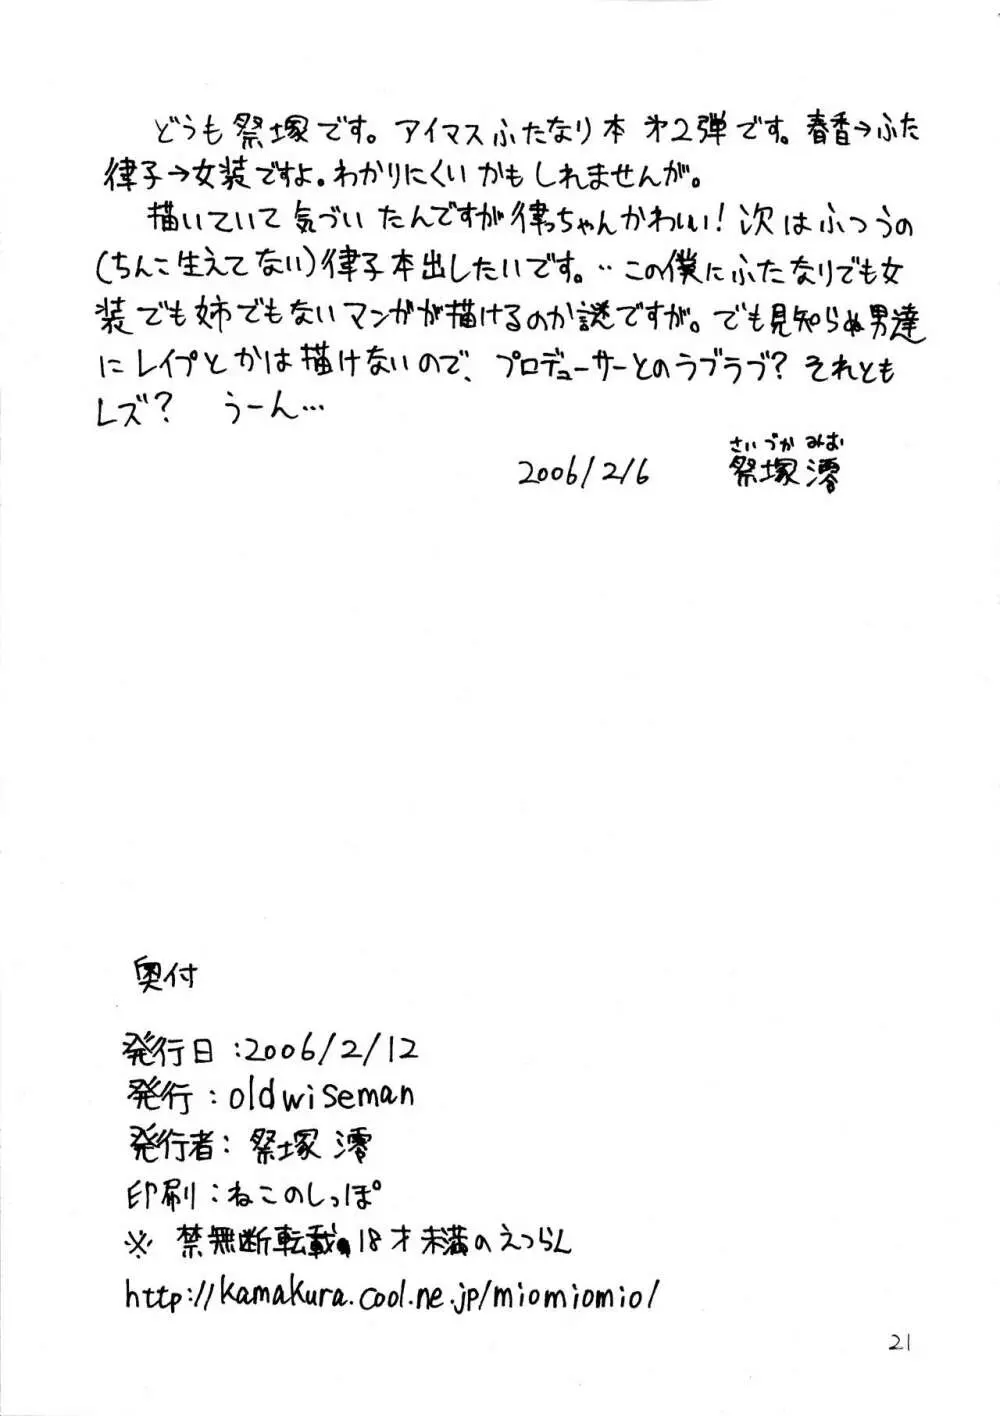 どうも祭塚です。アイマスふたなり本 才2弾です。春香→ふた
律子→女装ですよ。わかりにくいかもしれませんが。
描いていて気づいたんですが律っちゃんかわいい!次はふつうの
(ちんこ生えてない)律子本出したいです。‥この僕にふたなりでも女
装でも姉でもないマンガが描けるのか謎ですが。でも見知らぬ男達
にレイプとかは描けないので、プロデューサーとのラブラブ?それとも
レズ? うーん…
さいづか みお
2006/2/6 祭塚 澪
奥付
発行日:2006/2/12
発行:oldwiseman
発行者:祭塚 澪
印刷:ねこのしっぽ
※ 禁無断転載、18才未満のえつらん
http://kamakura.cool.ne.jp/miomiomio/
21